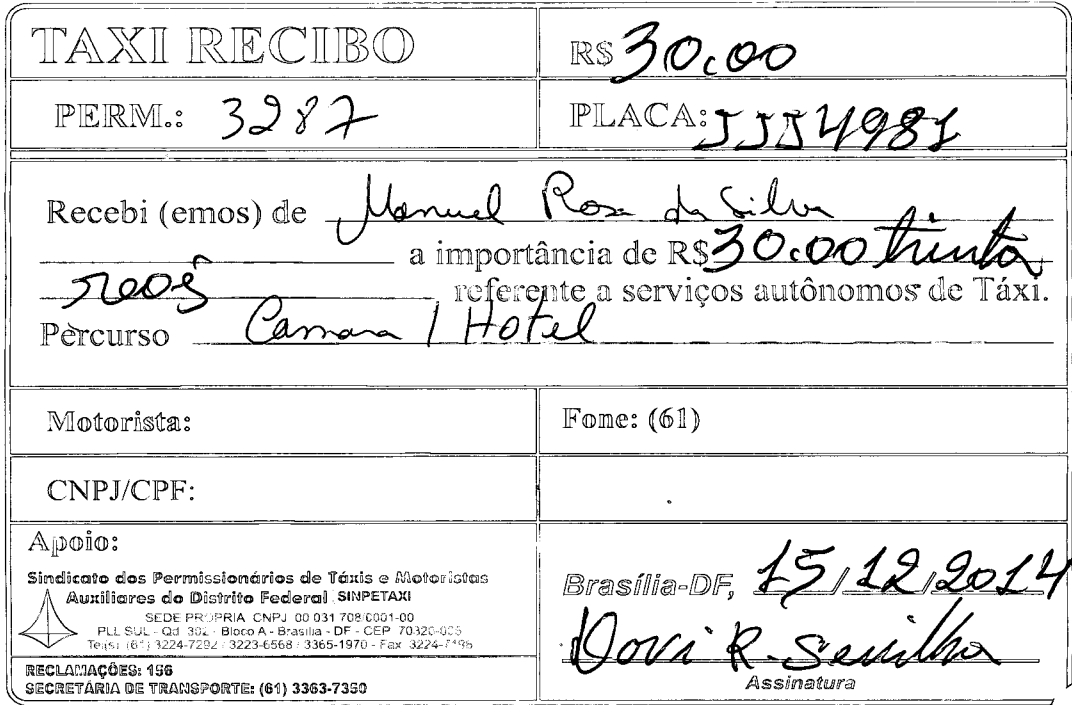 TAXI RECIBO
R$ 30.00
PERM.: 3287
PLACA: JJJ4981
Recebi (emos) de Manuel Rosa da Silva
a importância de R$ 30.00 trinta
reais referente a serviços autônomos de Táxi.
Percurso Camara / Hotel
Motorista:
Fone: (61)
CNPJ/CPF:
Apoio:
Sindicato dos Permissionários de Táxis e Motoristas
Auxiliares do Distrito Federal SINPETAXI
SEDE PRÓPRIA CNPJ 00 031 708/0001-00
PLL SUL - Qd 302 - Bloco A - Brasília - DF - CEP 70320-
Tel(s) (61) 3224-7292 / 3223-6568 / 3365-1970 - Fax 3224-
RECLAMAÇÕES: 156
SECRETÁRIA DE TRANSPORTE: (61) 3363-7350
Brasília-DF, 15/12/2014
R.
Assinatura